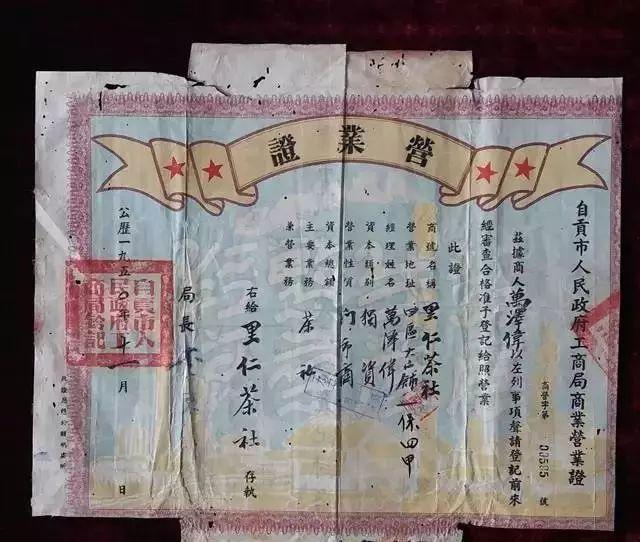 營業證
自貢市人民政府工商局商業營業證
商營字第 00585 號
茲據商人萬澤偉以左列事項聲請登記前來
經審查合格准予登記給照營業
此證
商號名稱 里仁茶社
營業地址 四區大山舖一保四甲
經理姓名 萬澤偉
資本類別 獨資
營業性質 門市商
資本總額
主要業務 茶社
兼營業務
右給 里仁茶社 存執
局長
公歷一九五〇年十一月 日
自貢市人民政府工商局鈐記